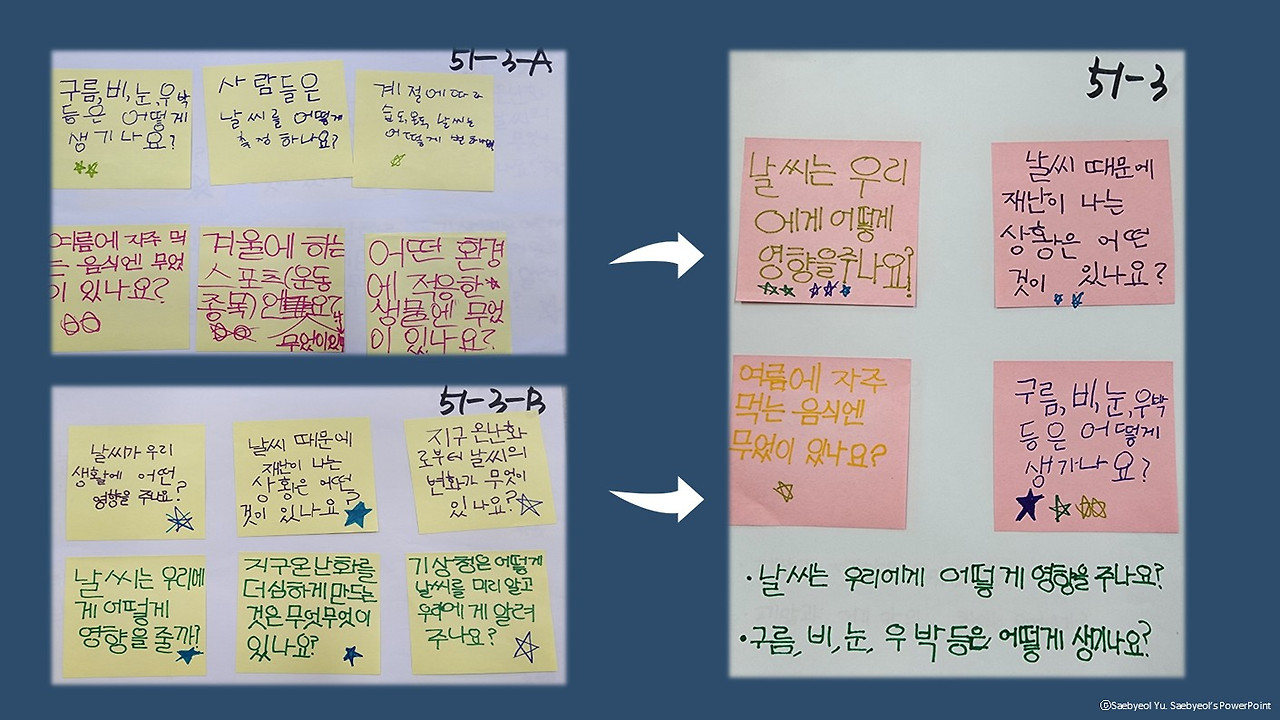 51-3-A
구름,비,눈,우박
등은 어떻게
생기나요?
사람들은
날씨를 어떻게
측정 하나요?
계절에따라
습도,온도, 날씨는
어떻게
여름에 자주 먹
는 음식엔 무었
이 있나요?
겨울에 하는
스포츠(운동
종목)엔
무엇이있
어떤 환경
에 적응한
생물엔 무엇
이 있나요?
51-3-B
날씨가 우리
생활에 어떤
영향을 주나요?
날씨 때문에
재난이 나는
상황은 어떤
것이 있나요
지구 온난화
로부터 날씨의
변화가 무엇이
있나요?
날씨는 우리에
게 어떻게
영향을 줄까?
지구온난화를
더심하게 만드는
것은무엇무엇이
있나요?
기상청은 어떻게
날씨를 미리 알고
우리에게 알려
주나요?
51-3
날씨는 우리
에게 어떻게
영향을주나요?
날씨 때문에
재난이 나는
상황은 어떤
것이 있나요?
여름에 자주
먹는 음식엔
무엇이 있나요?
구름,비,눈,우박
등은 어떻게
생기나요?
·날씨는 우리에게 어떻게 영향을 주나요?
·구름, 비, 눈, 우박 등은 어떻게 생기나요?
ⓒSaebyeol Yu. Saebyeol's PowerPoint